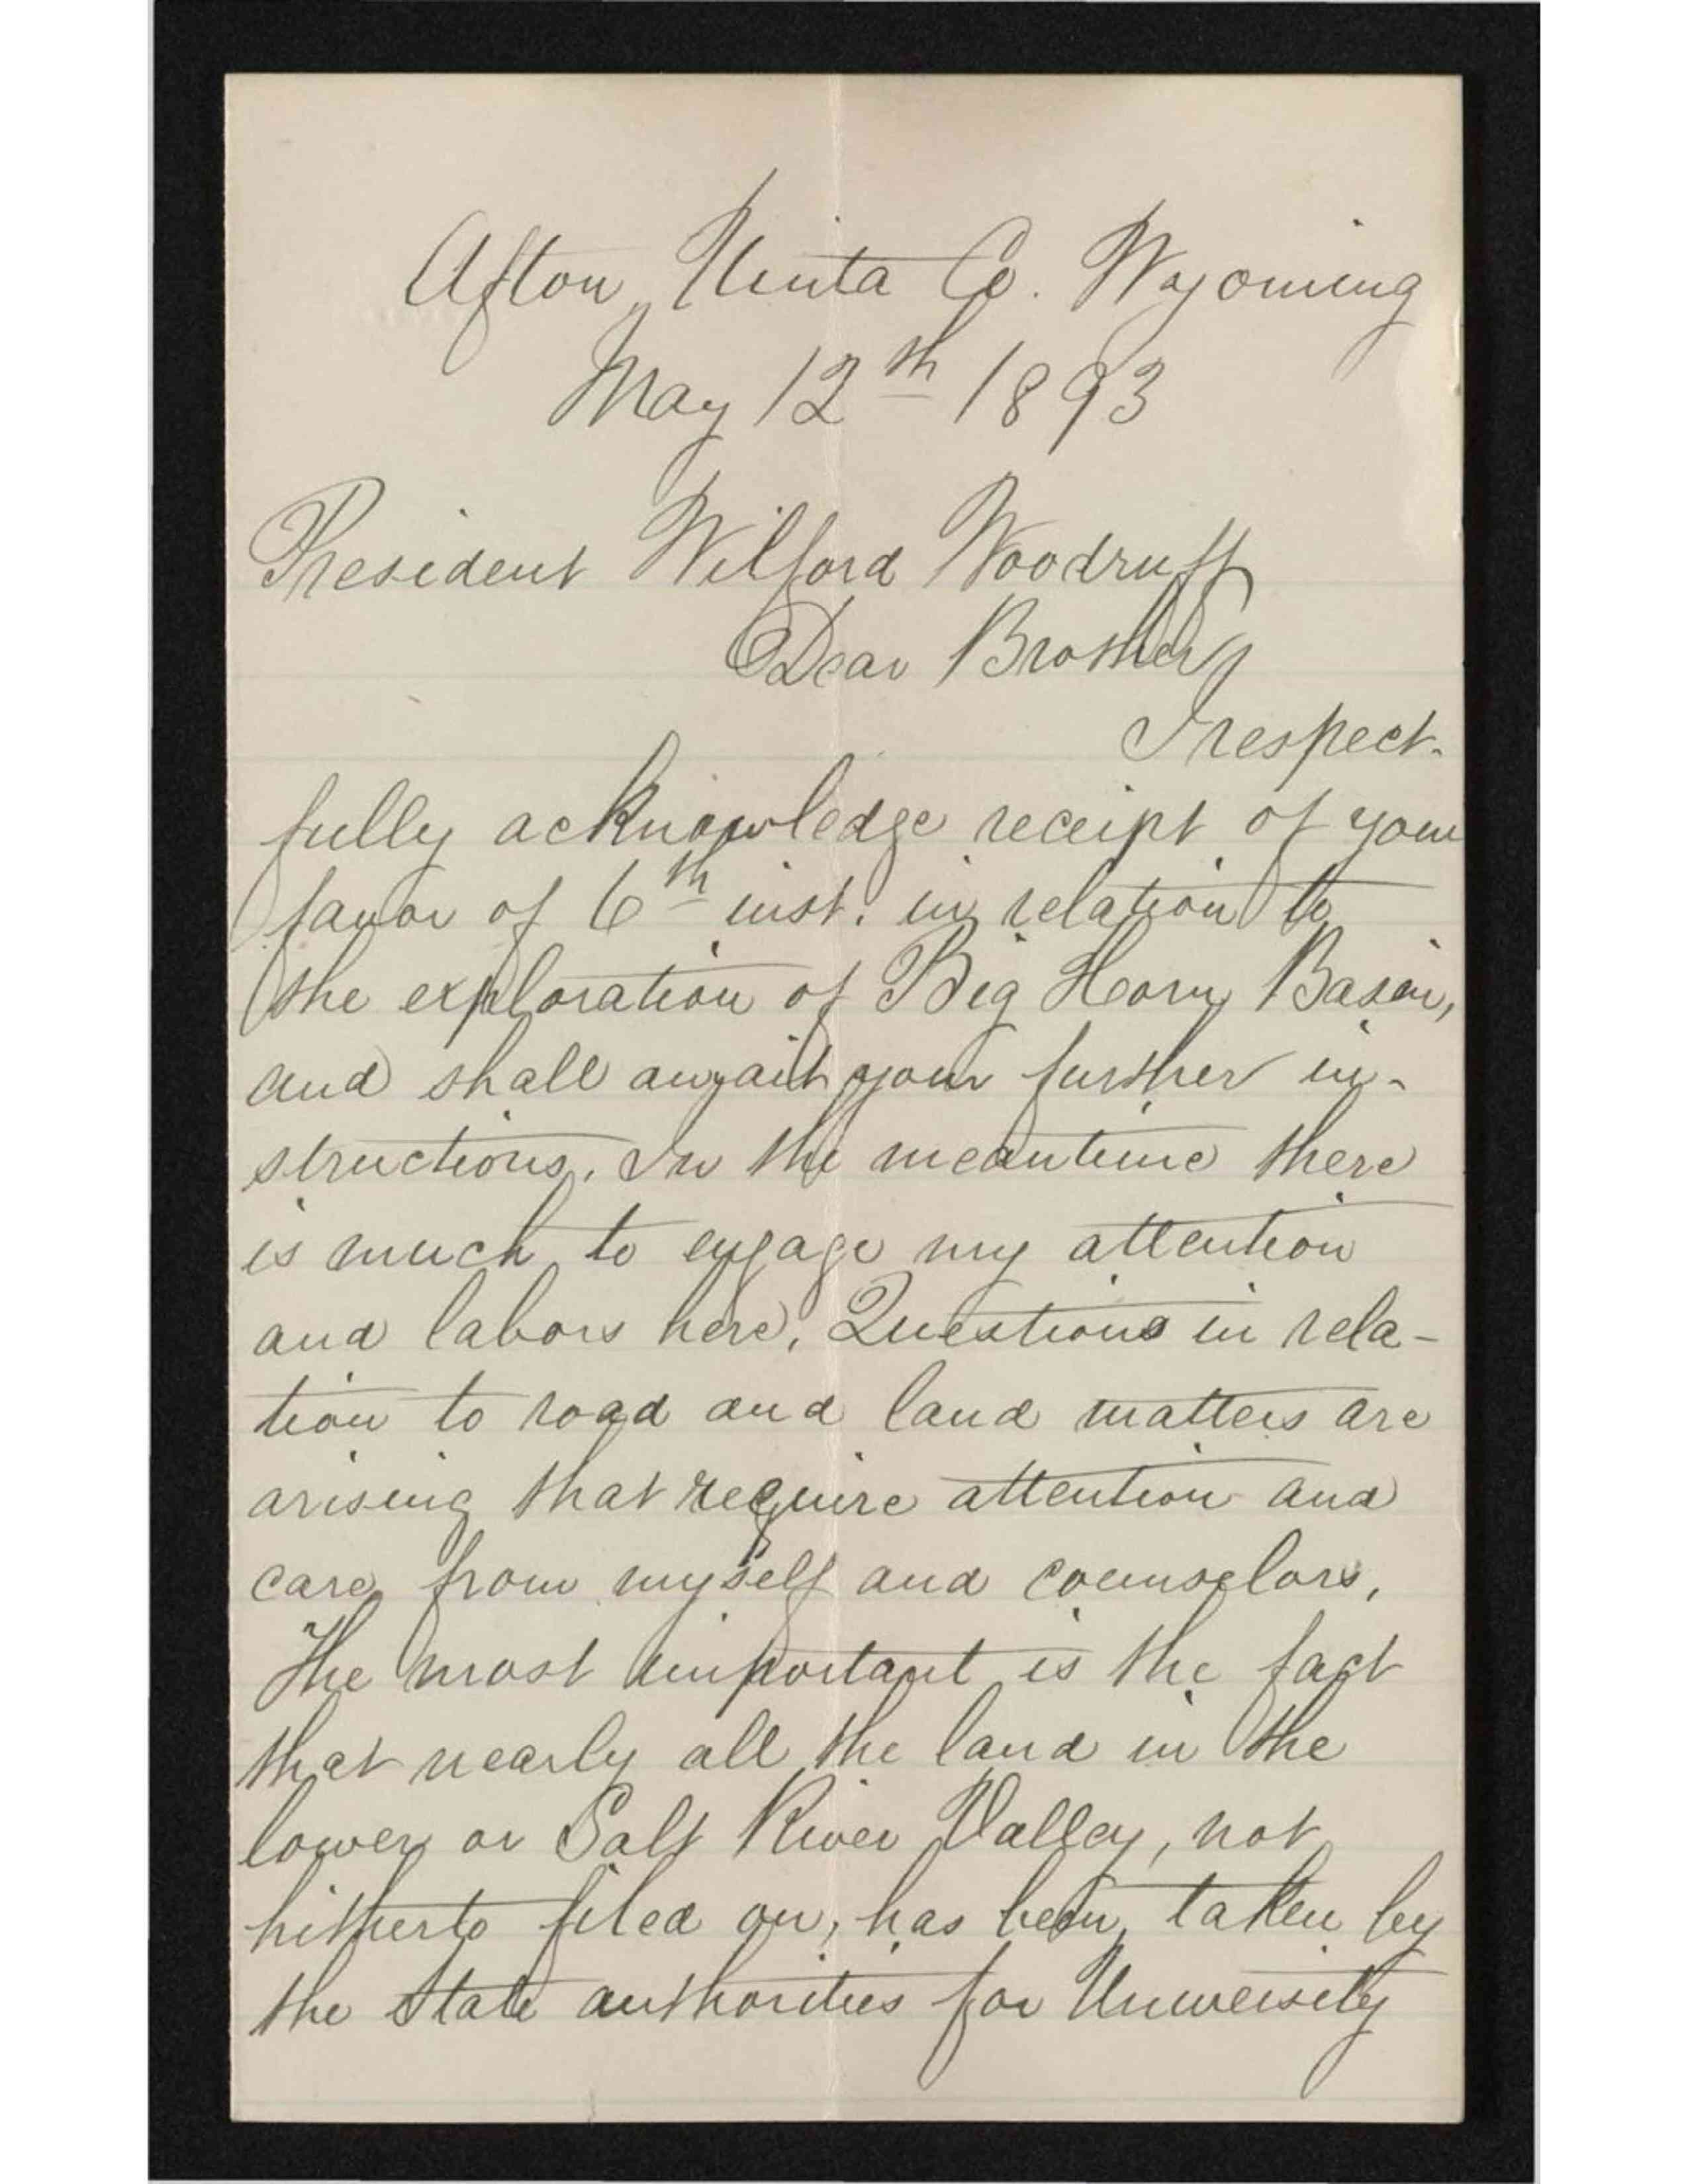 Afton, Uinta Co. Wyoming
May 12th 1893
President Wilford Woodruff
Dear Brother,
I respect-
fully acknowledge receipt of your
favor of 6th inst. in relation to
the exploration of Big Horn Basin,
and shall await your further in-
structions. In the meantime there
is much to engage my attention
and labors here. Questions in rela-
tion to road and land matters are
arising that require attention and
care from myself and counselors.
The most important is the fact
that nearly all the land in the
lower or Salt River Valley, not
hitherto filed on, has been taken by
the State authorities for University